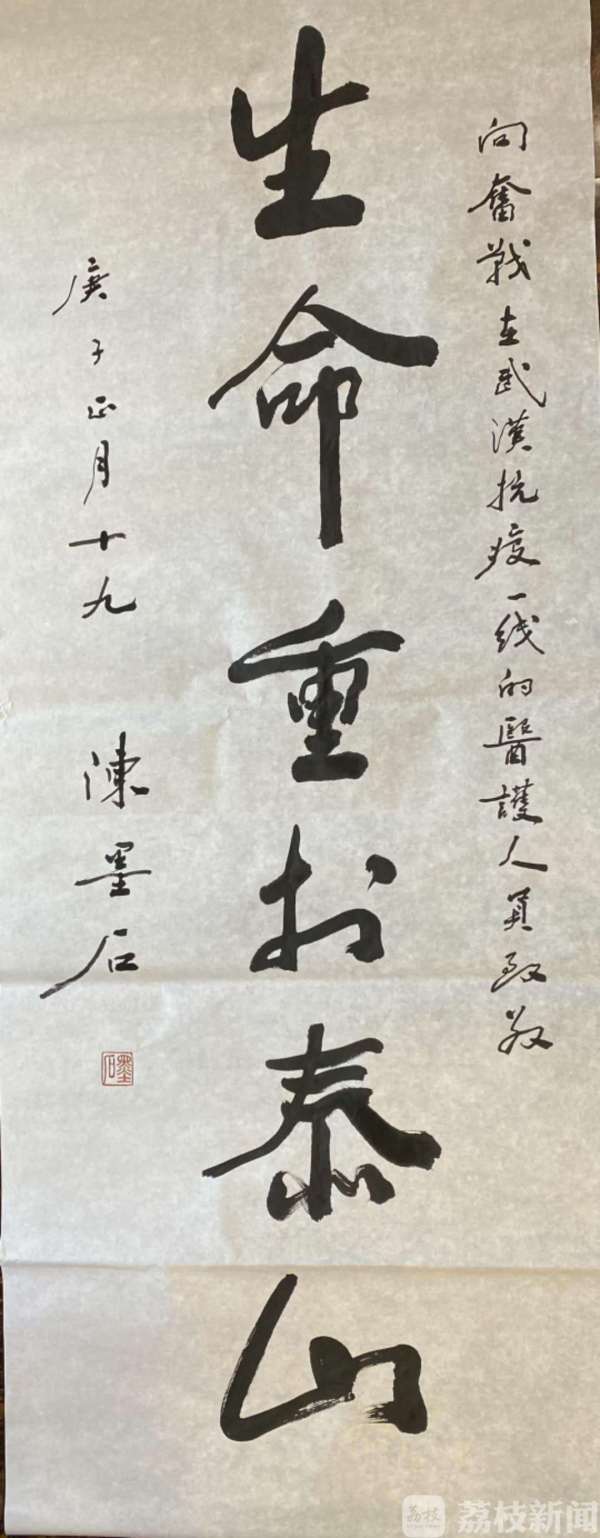 向奮戰在武漢抗疫一线的醫護人員致敬
生命重於泰山
庚子正月十九 陳墨石
墨石
荔枝 荔枝新闻